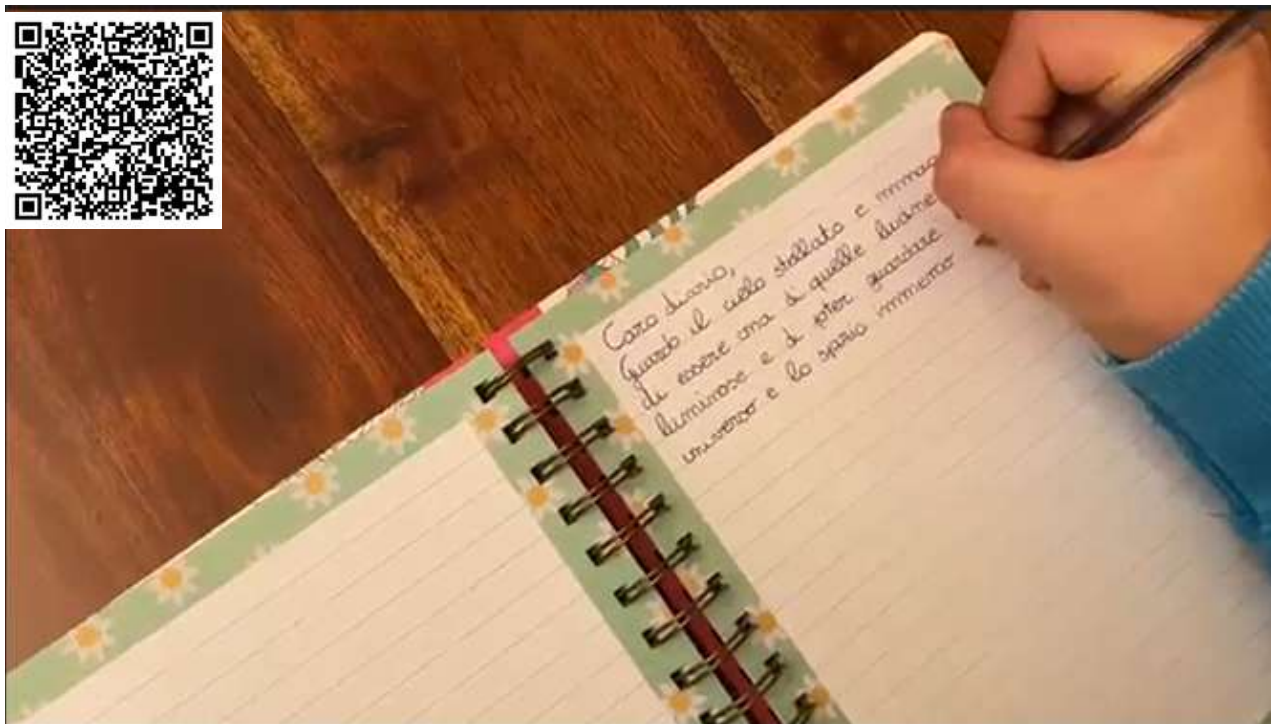 Caro diario,
Guardo il cielo stellato e immagino
di essere una di quelle
luminose e di poter guardare
universo e lo spazio immenso